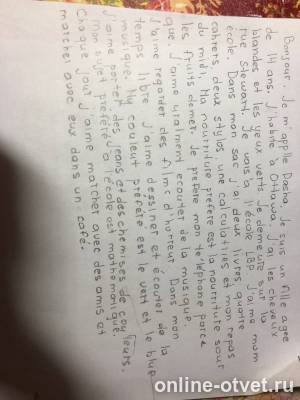 Bonjour. Je m'applle Dacha. Je suis un fille agee
de 14 ans. J'habite à Ottawa. J'ai les cheveux
blandes et les yeux verts. Je demeure sur la
rue Stewart. Je vais à l'école LBP. J'aime mom
école. Dans mon sac j'ai deux livres quatre
cahiers, deux stylos, une calculatrices et mon repas
du midi. Ma nourriture préférée est la nourriture sour
les fruits demer. Je préfère mon teléphone parce
que j'aime vraiment ecouter de la musique.
J'aime regarder des films d'horreur. Dans mon
temps libre j'aime dessiner et écouter de la
musique. My couleut préféré est le vert et le blue.
J'aime porter des jeans et des chemises de couleurs.
Mon sujet préféré à l'école est mathématique.
Chaque jour j'aime matcher avec des amis et
matcher avec eux dans un café.
online-otvet.ru